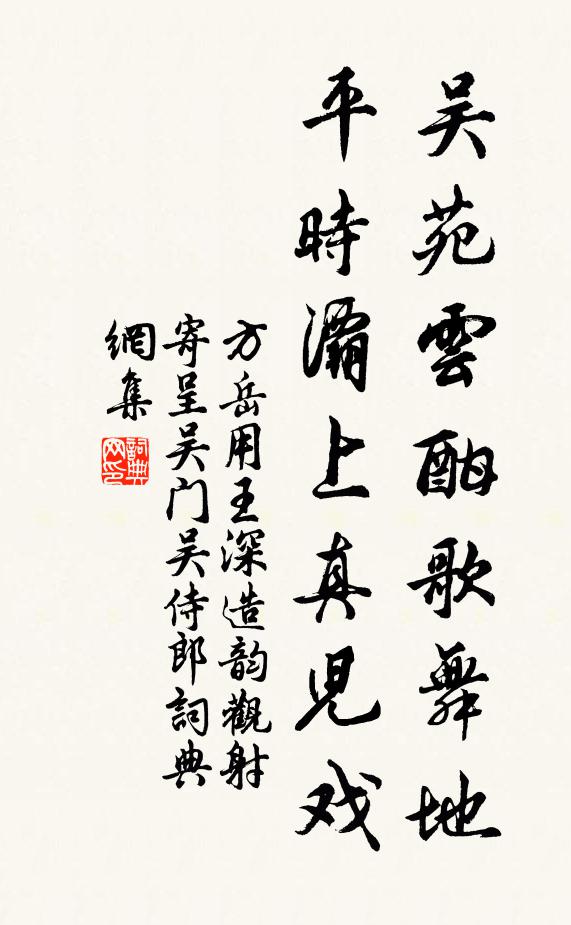 吴苑雲酣歌舞地
平時灞上真児戏
方岳用王深造韵觀射
寄呈吴门吴侍郎詞典
網集
詞典網印